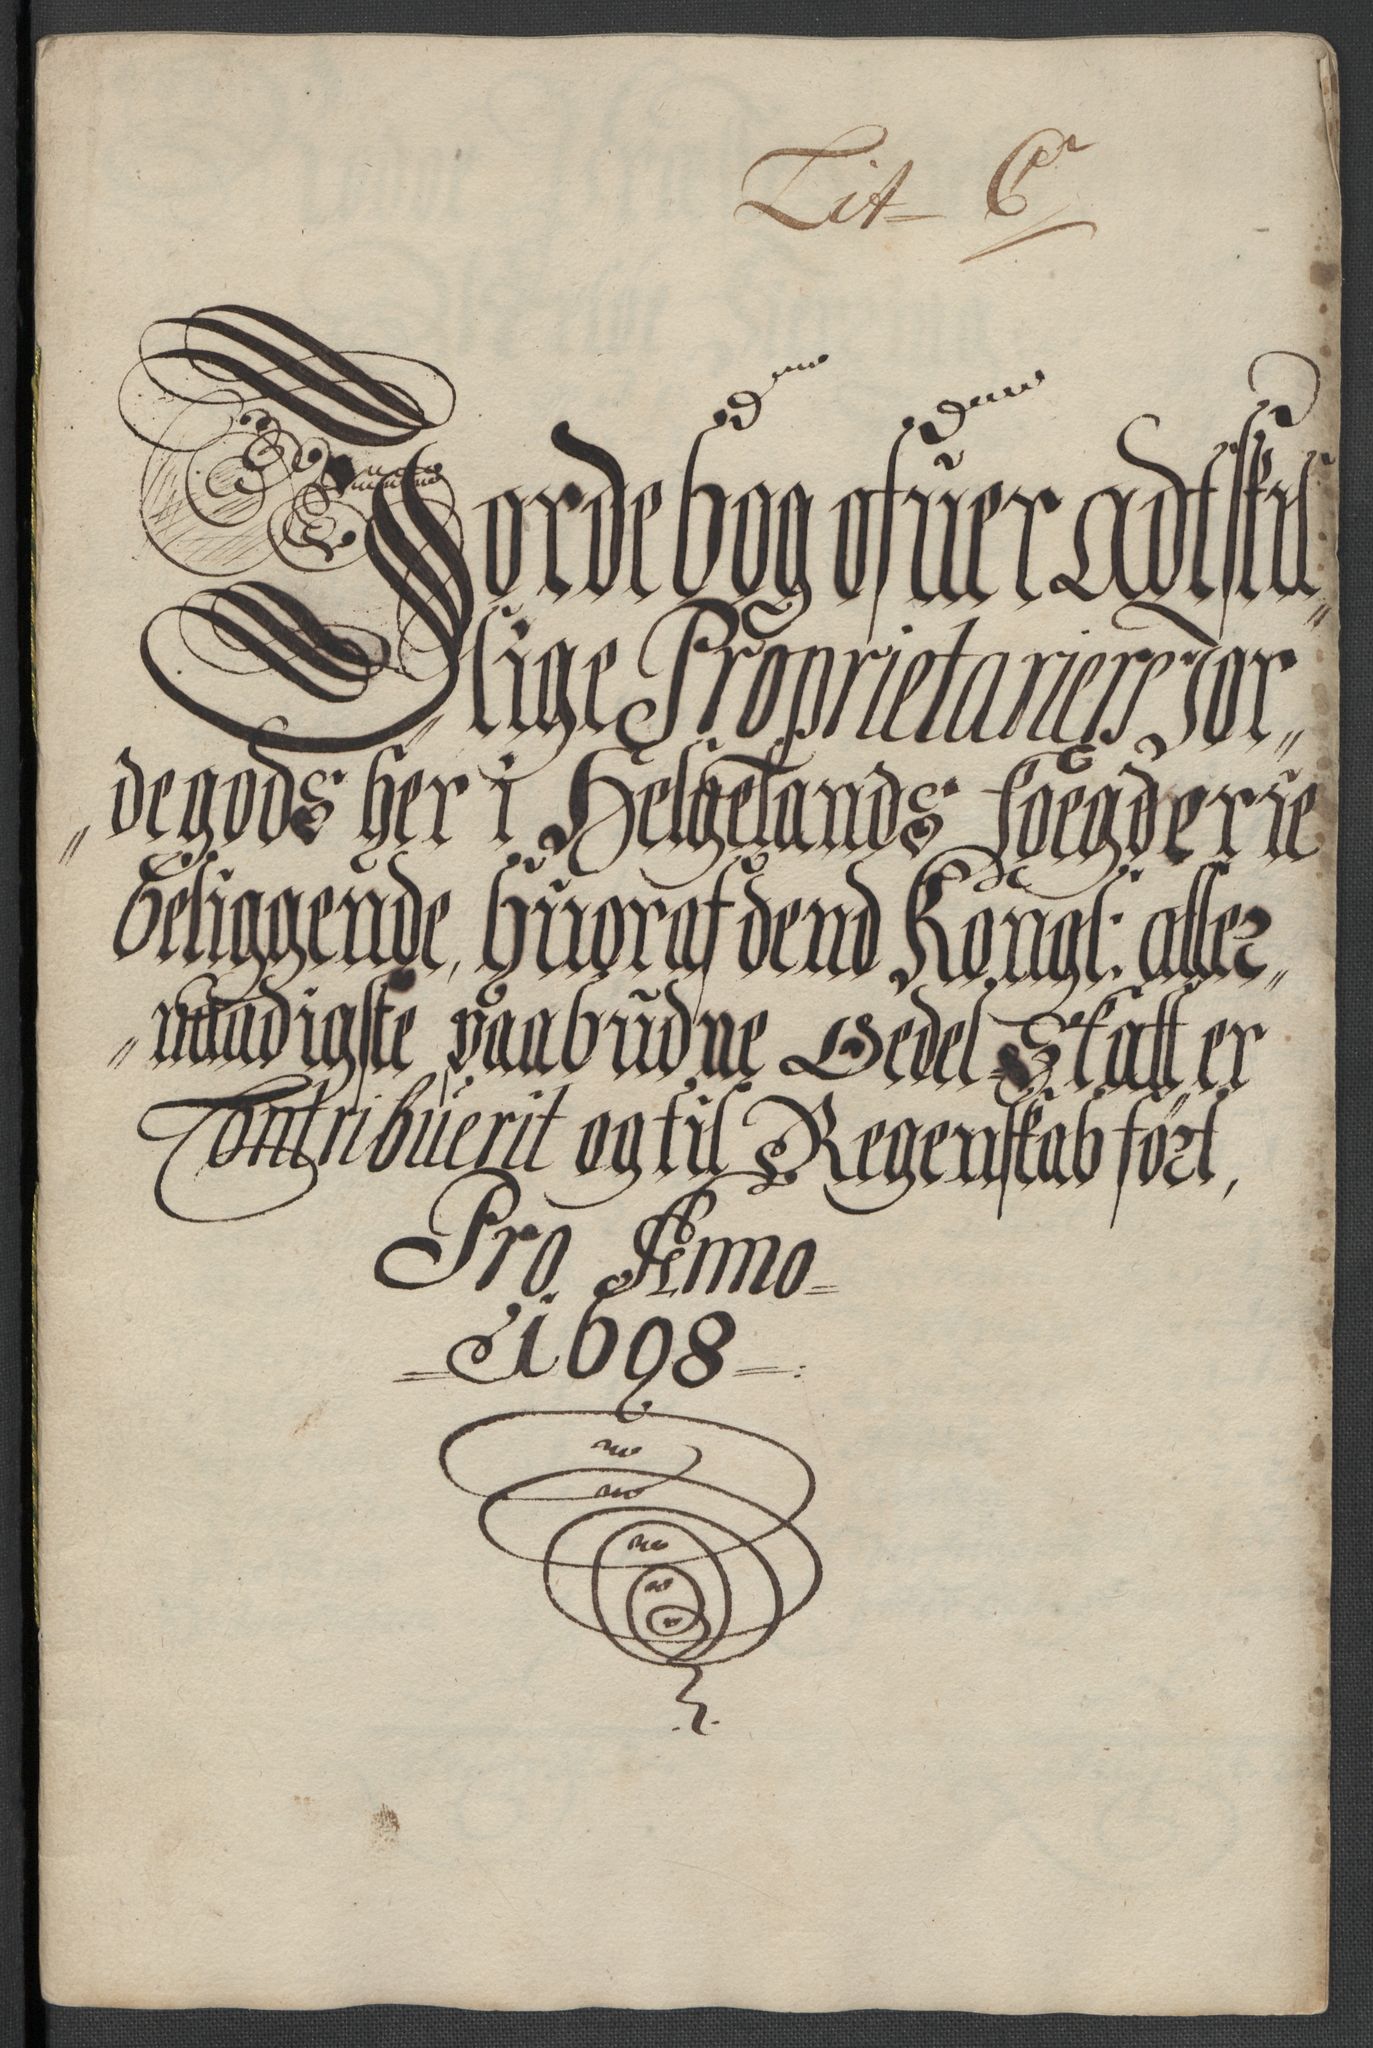 Lit C
Jordebog ofuer Adtskil„
„lige Proprietariers Jor„
„degods her i Helgelands foegderie
beliggende, huoraf dend Kongl: aller„
„naadigste paabudne Oedel Skatt er
Contribuerit og til Regenskab fört,
Pro Anno
1698